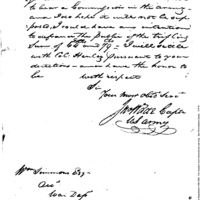 to bear a Commission in the army
and I do hope it will not be sup-
posed, I could have any intention
to defraud the public of the trifling
Sum of 60 and 79 - I will settle
with Col. Henley pursuant to your
directions and have the honor to
be with respect
Sir
Your most Obd Serv
Capt
US army
Wm Simmons Esq
War Dept